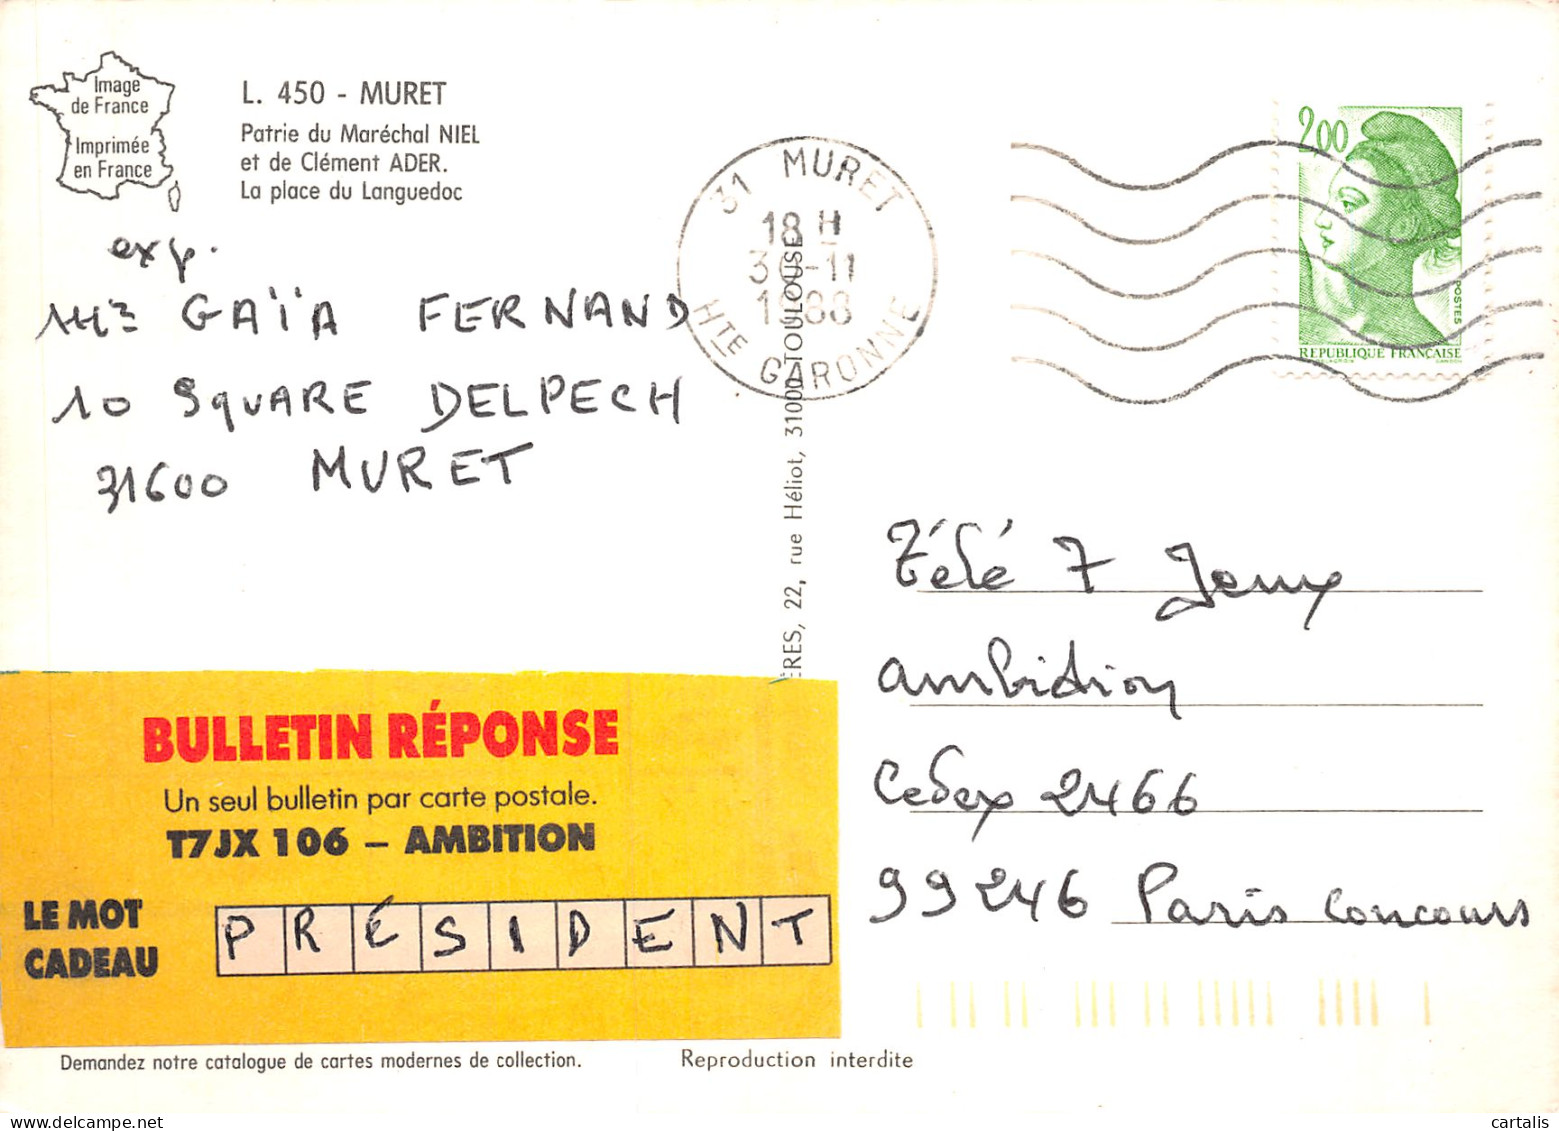 Image
de France
Imprimée
en France
L. 450 - MURET
Patrie du Maréchal NIEL
et de Clément ADER.
La place du Languedoc
31 MURET
18 H
30-11
1988
HTE GARONNE
2,00
POSTES
REPUBLIQUE FRANÇAISE
exp.
GAÏA FERNAND
10 SQUARE DELPECH
31600 MURET
ÈRES, 22, rue Héliot, 31000 TOULOUSE
Télé 7 Jeux
ambition
Cedex 2466
99246 Paris Concours
BULLETIN RÉPONSE
Un seul bulletin par carte postale.
T7JX 106 – AMBITION
LE MOT
CADEAU
PRÉSIDENT
Demandez notre catalogue de cartes modernes de collection.
Reproduction interdite
cartalis